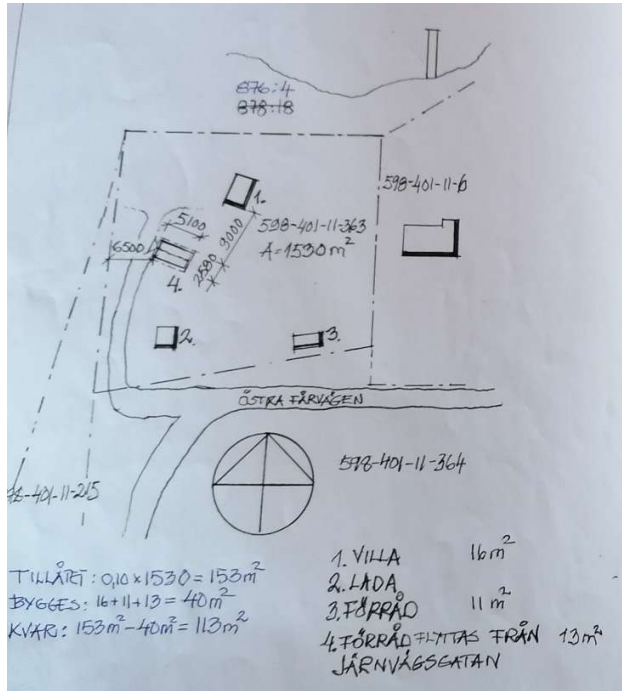 876:4
878:18
598-401-11-6
1.
5100
598-401-11-363
A=1530 m²
9000
6500
2580
4.
2.
3.
ÖSTRA FÅRVÄGEN
598-401-11-364
-401-11-215
TILLÅTET: 0,10 x 1530 = 153m²
BYGGES: 16+11+13 = 40m²
KVAR: 153m² - 40m² = 113m²
1. VILLA 16m²
2. LADA
3. FÖRRÅD 11m²
4. FÖRRÅD FLYTTAS FRÅN 13m²
JÄRNVÄGSGATAN